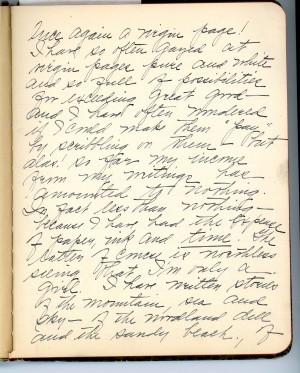 Once again a virgin page!
I have so often gazed at
virgin pages pure and white
and so full of possibilities
for exceeding great good —
and I have often wondered
if I could make them "pay"
by scribbling on them — but
alas! so far my income
from my writings has
amounted to nothing.
In fact less than nothing —
because I have had the expense
of paper, ink and time. The
latter of course is worthless
seeing that I'm only a
girl. I have written stories
of the mountain, sea and
sky — of the woodland dell
and the sandy beach, of